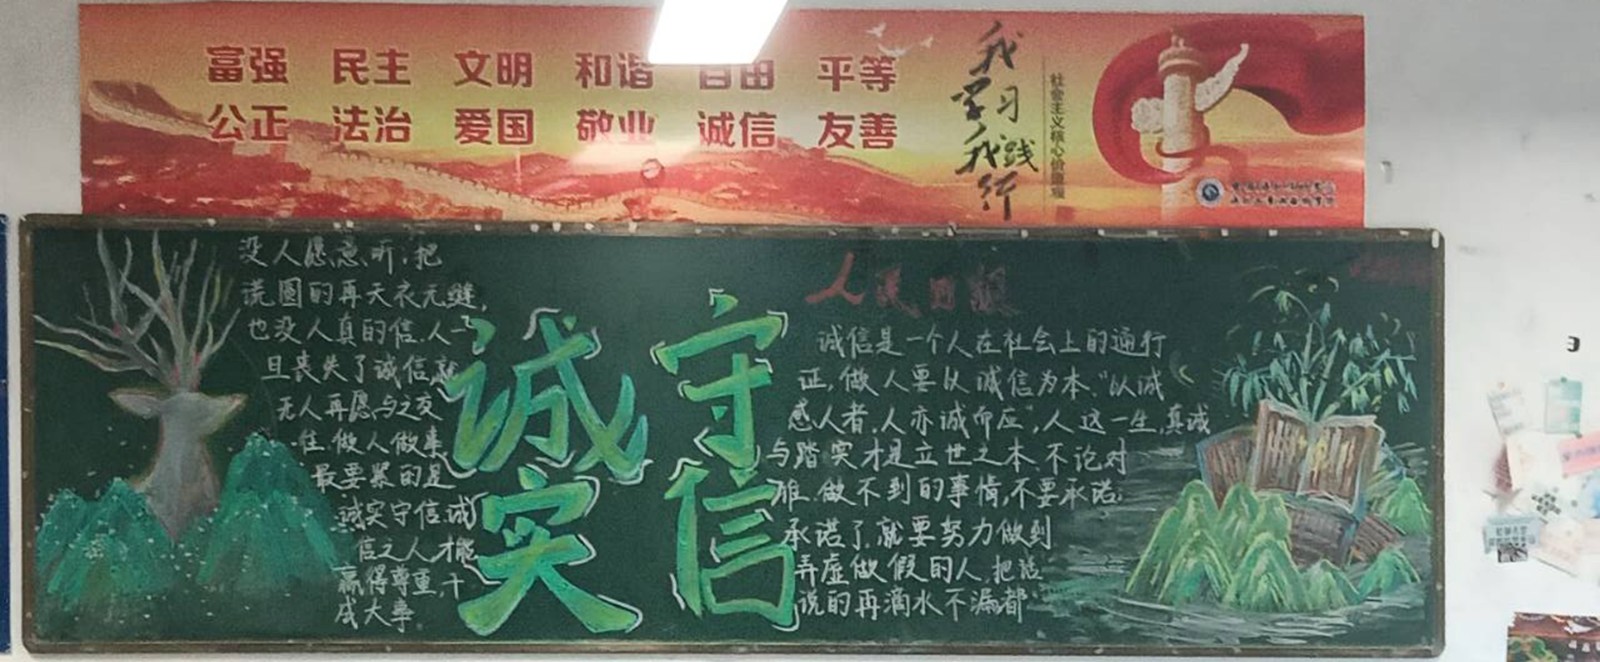 富强 民主 文明 和谐 自由 平等
公正 法治 爱国 敬业 诚信 友善
我
学习
我践
行
社会主义核心价值观
没人愿意听,把
谎圆的再天衣无缝,
也没人真的信.人一
旦丧失了诚信就
无人再愿与之交
往.做人做事
最要紧的是
诚实守信.诚
信之人才能
赢得尊重,干
成大事.
诚
实
守
信
人民日报
诚信是一个人在社会上的通行
证,做人要以诚信为本."以诚
感人者,人亦诚而应",人这一生,真诚
与踏实才是立世之本.不论对
谁.做不到的事情,不要承诺;
承诺了,就要努力做到
弄虚做假的人,把话
说的再滴水不漏都